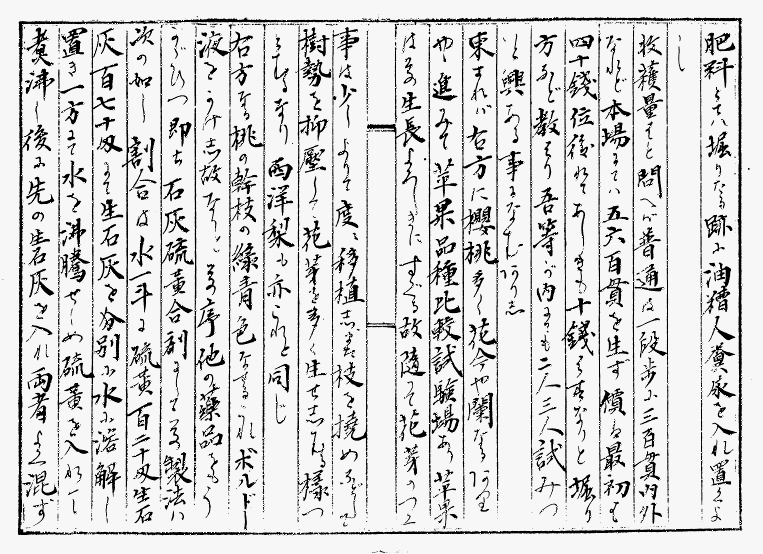 肥料とては堀りたる跡に油糟人糞尿を入れ置くよ
し
收穫量はと問へば普通は一段歩に三百貫内外
なれど本場にては五六百貫を生ず價は最初も
四十錢位後れて あしきも十錢 なりと堀り
方など教はり吾等が内にも二人三人試みつ
いと興ある事になむありし
東すれば右方に櫻桃多く花今や闌なるあり
や 進みて苹果品種比較試驗場あり苹果
は 生長よろしきに すぐる故隨つて花芽のつく
事は少しよりて度々移植し また枝を撓めなどして
樹勢を抑壓して花芽を多く生せしむる樣つ
とむるなり西洋梨も亦これと同じ
右方なる桃の幹枝の綠青色なるはこれボルドー
液をかけし故なりと 序 他の藥品をもう
かゞひつ即ち石灰硫黄合劑にして 製法は
次の如し 割合は水一斗に硫黄百二十匁生石
灰百七十匁にて生石灰を分別の水に溶解し
置き一方にて水を沸騰せしめ硫黄を入れて
煮沸し後に先の生石灰を入れ兩者よく混ず